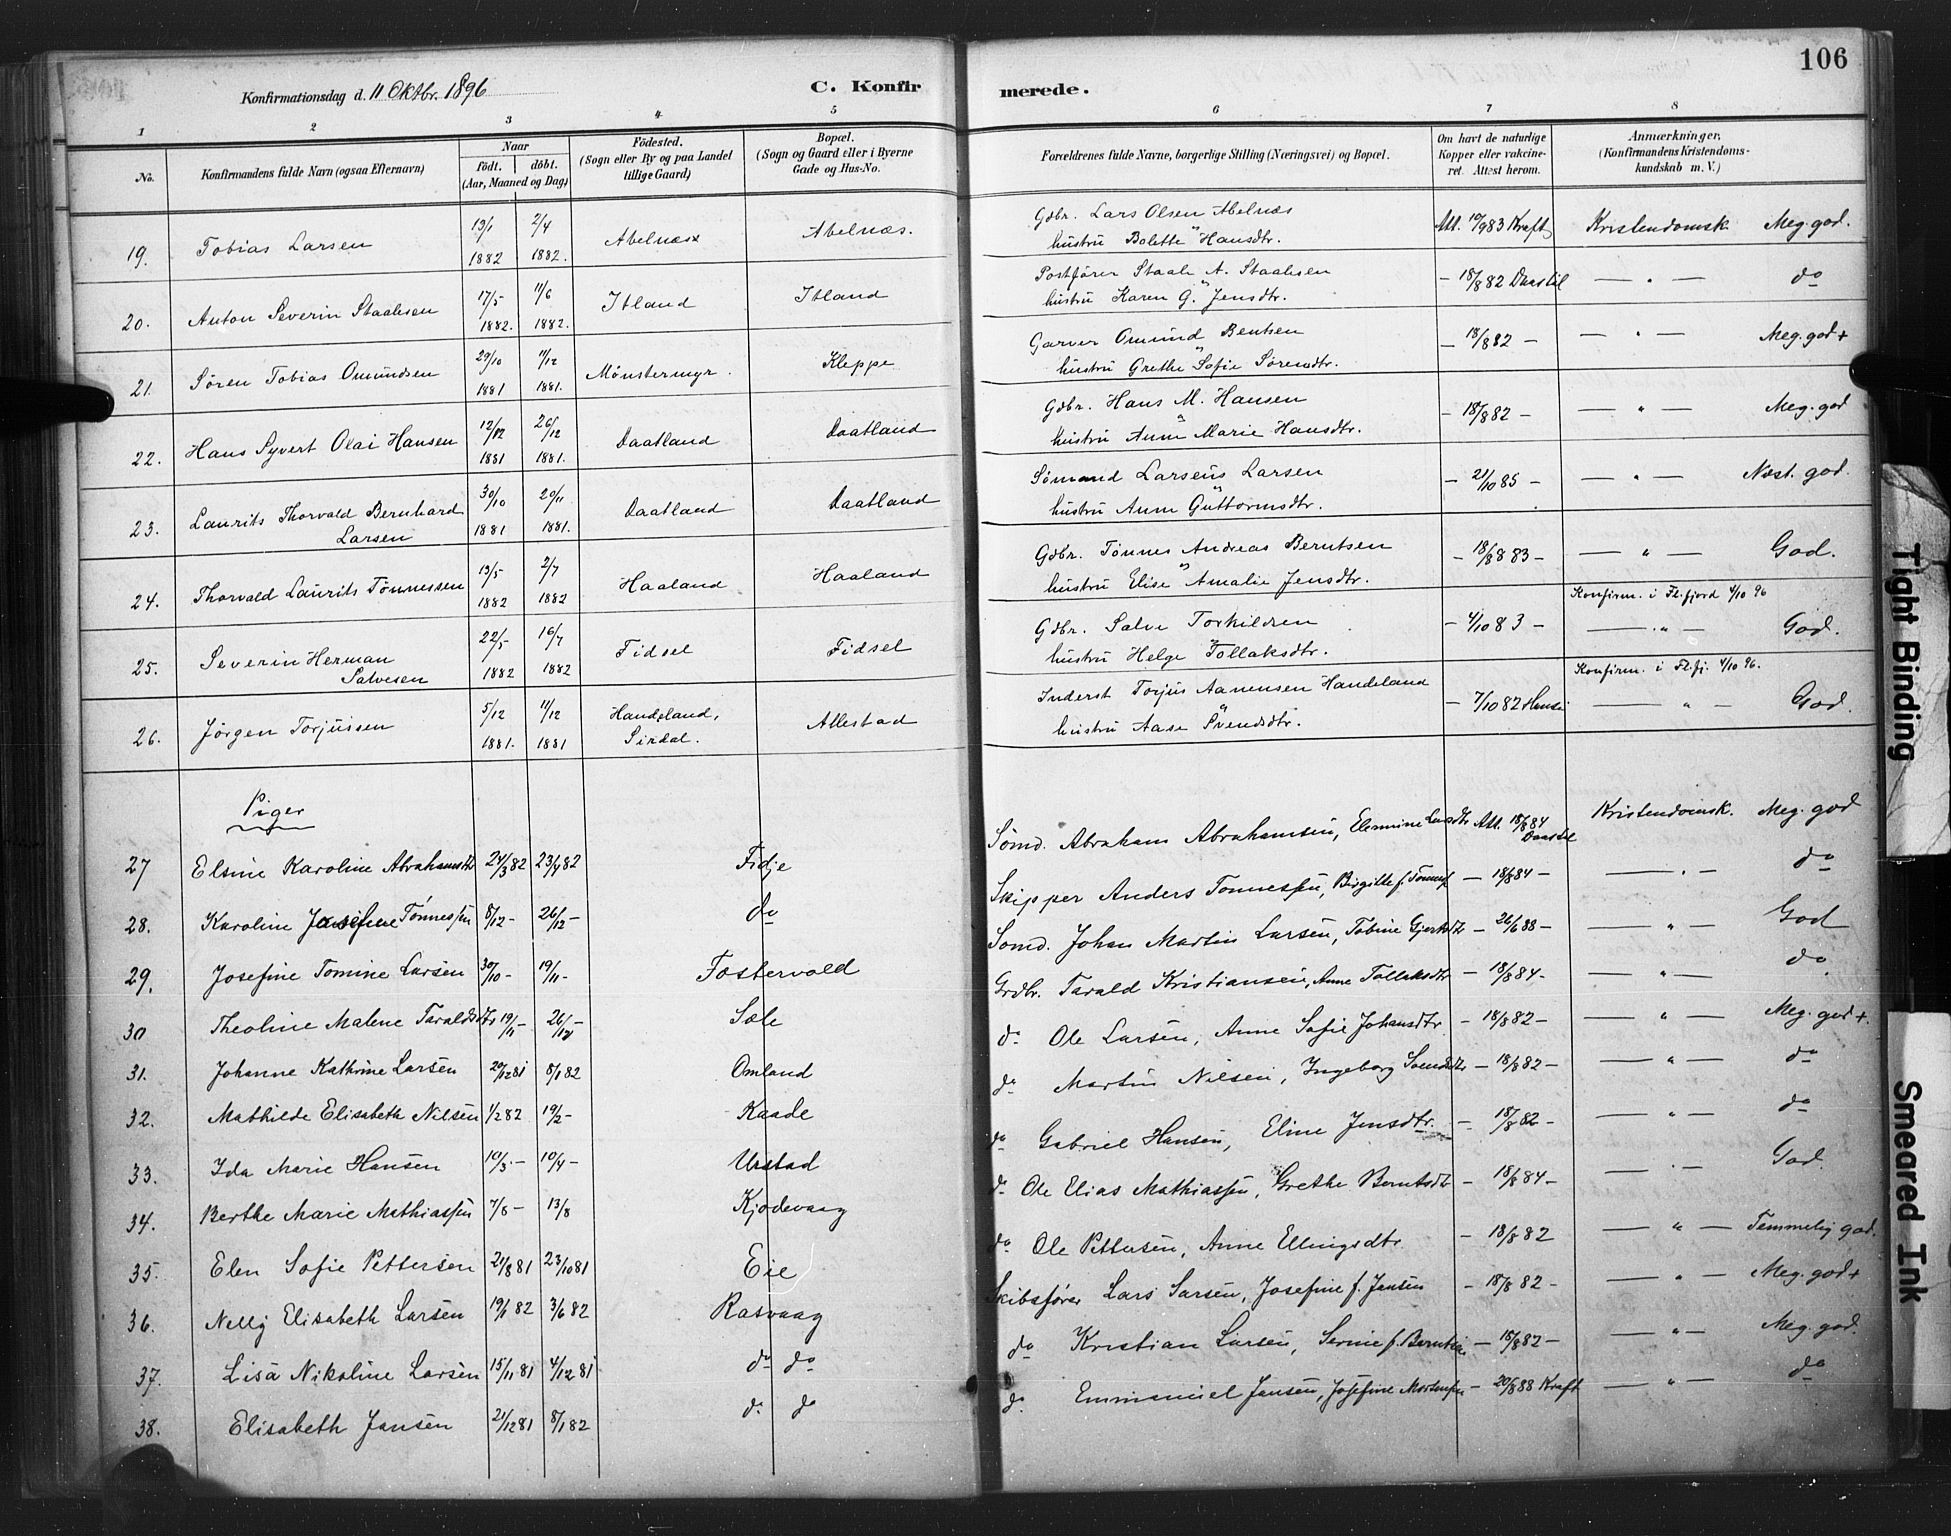 106
Konfirmationsdag d. 11 Oktbr. 1896
C. Konfirmerede.
1 2 3 4 5 6 7 8
No.
Konfirmandens fulde Navn (ogsaa Efternavn)
Naar
födt. döbt.
(Aar, Maaned og Dag)
Födested.
(Sogn eller By og paa Landet
tillige Gaard)
Bopæl.
(Sogn og Gaard eller i Byerne
Gade og Hus-No.
Forældrenes fulde Navne, borgerlige Stilling (Næringsvei) og Bopæl.
Om havt de naturlige
Kopper eller vakcine-
ret. Attest herom.
Anmærkninger,
(Konfirmandens Kristendoms-
kundskab m. V.)
19. Tobias Larsen 13/1 1882 2/4 1882. Abelnæs Abelnæs. Gdbr. Lars Olsen Abelnæs Att. 10/9 83 Kraft Kristendomsk. Meg. god.
hustru Bolette Hansdtr.
20. Anton Severin Staalesen 17/5 1882. 11/6 1882. Itland Itland Postfører Staale A. Staalesen – 18/8 82 Daastøl — " — do
hustru Karen G. Jensdtr.
21. Søren Tobias Omundsen 29/10 1881 11/12 1881. Mønstermyr. Kleppe Garver Omund Bentsen – 18/8 82 – — " — Meg. god +
hustru Grethe Sofie Sørensdtr.
22. Hans Syvert Olai Hansen 12/12 1881 26/12 1881. Daatland Daatland Gdbr. Hans M. Hansen – 18/8 82 – — " — Meg. god
hustru Anne Marie Hansdtr.
23. Laurits Thorvald Bernhard
Larsen 30/10 1881 20/11 1881. Daatland Daatland Sømand Larseus Larsen – 21/10 85 – — " — Næst. god.
hustru Anne Guttormsdtr.
24. Thorvald Laurits Tønnessen 13/5 1882 2/7 1882 Haaland Haaland Gdbr. Tønnes Andreas Berntsen – 18/8 83 – — " — God.
hustru Elise Amalie Jensdtr.
Konfirm. i Fl.fjord 4/10 96
25. Severin Herman
Salvesen 22/5 1882 16/7 1882 Fidsel Fidsel Gdbr. Salve Torkildsen – 4/10 83 – — " — God.
hustru Helge Tollaksdtr.
Konfirm. i Fl.fj. 4/10 96.
26. Jørgen Torjussen 5/12 1881. 11/12 1881 Handeland,
Sirdal. Allestad Inderst Torjus Aanensen Handeland – 7/10 82 — " — God.
hustru Aase Svendsdtr.
Piger
27 Elsine Karoline Abrahamsdtr 24/3 82 23/4 82 Fidje Sømd. Abraham Abrahamsen, Elenine Larsdtr Att. 18/8 84 Daastøl Kristendomsk. Meg. god
28. Karoline Josefine Tønnessen 8/12 – 26/12 – do Skipper Anders Tønnessen, Birgitte f. Tønnes – 18/8 84 – — " — do
29. Josefine Tomine Larsen 30/10 – 19/11 – Fostervold Sømd. Johan Martin Larsen, Tobine Gjertsdtr – 26/6 88 – — " — God
30 Theoline Malene Taraldsdtr 19/11 – 26/12 – Sæle Grdbr. Tarald Kristiansen, Anne Tollaksdtr – 18/8 84 – — " — do
31. Johanne Kathrine Larsen 20/12 81 8/1 82 Omland do Ole Larsen, Anne Sofie Johansdtr – 18/8 82 – — " — Meg. god +.
32. Mathilde Elisabeth Nilsen 1/2 82 19/2 – Kaade do Martin Nilsen, Ingeborg – 18/8 82 – — " — do
33. Ida Marie Hansen 10/3 – 10/4 – Urstad do Gabriel Hansen, Eline Jensdtr. – 18/8 82 – — " — do
34. Berthe Marie Mathiassen 7/8 – 13/8 Kjodevaag do Ole Elias Mathiassen, Grethe Berntsdtr – 18/8 84 – — " — God.
35. Elen Sofie Pettersen 21/8 81 23/10 81 Eie do Ole Pettersen, Anne Ellingsdtr – 18/8 82 — " — Temmelig god.
36. Nelly Elisabeth Larsen 19/1 82 3/6 82 Rasvaag Skibsfører Lars Larsen, Josefine f. Jansen – 18/8 82 – — " — Meg. god +
37. Lisa Nikoline Larsen 15/11 81 4/12 81 do do do Kristian Larsen, Serine f. Berntsen – 18/8 82 – — " — Meg. god.
38. Elisabeth Jansen 21/12 81 8/1 82 do do do Emmanuel Jansen, Josefine Mortensen – 20/8 88 Kraft — " — do
Tight Binding
Smeared Ink